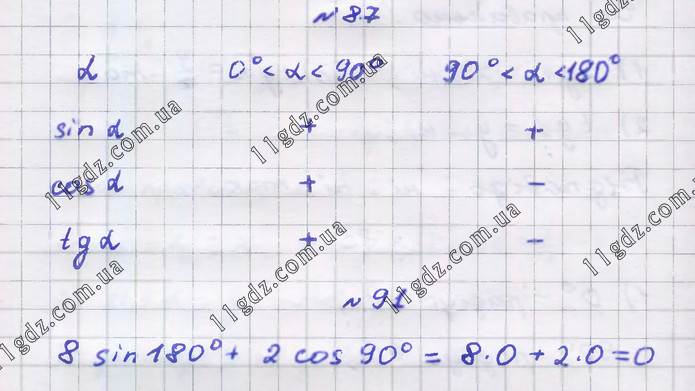 № 87
α 0° < α < 90° 90° < α < 180°
sin α + +
cos α + −
tg α + −
№ 91
8 sin 180° + 2 cos 90° = 8·0 + 2·0 = 0
11gdz.com.ua
11gdz.com.ua
11gdz.com.ua
11gdz.com.ua
11gdz.com.ua
11gdz.com.ua
11gdz.com.ua